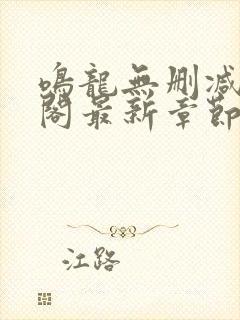 鳴龍無刪減
閣最新章節
江路